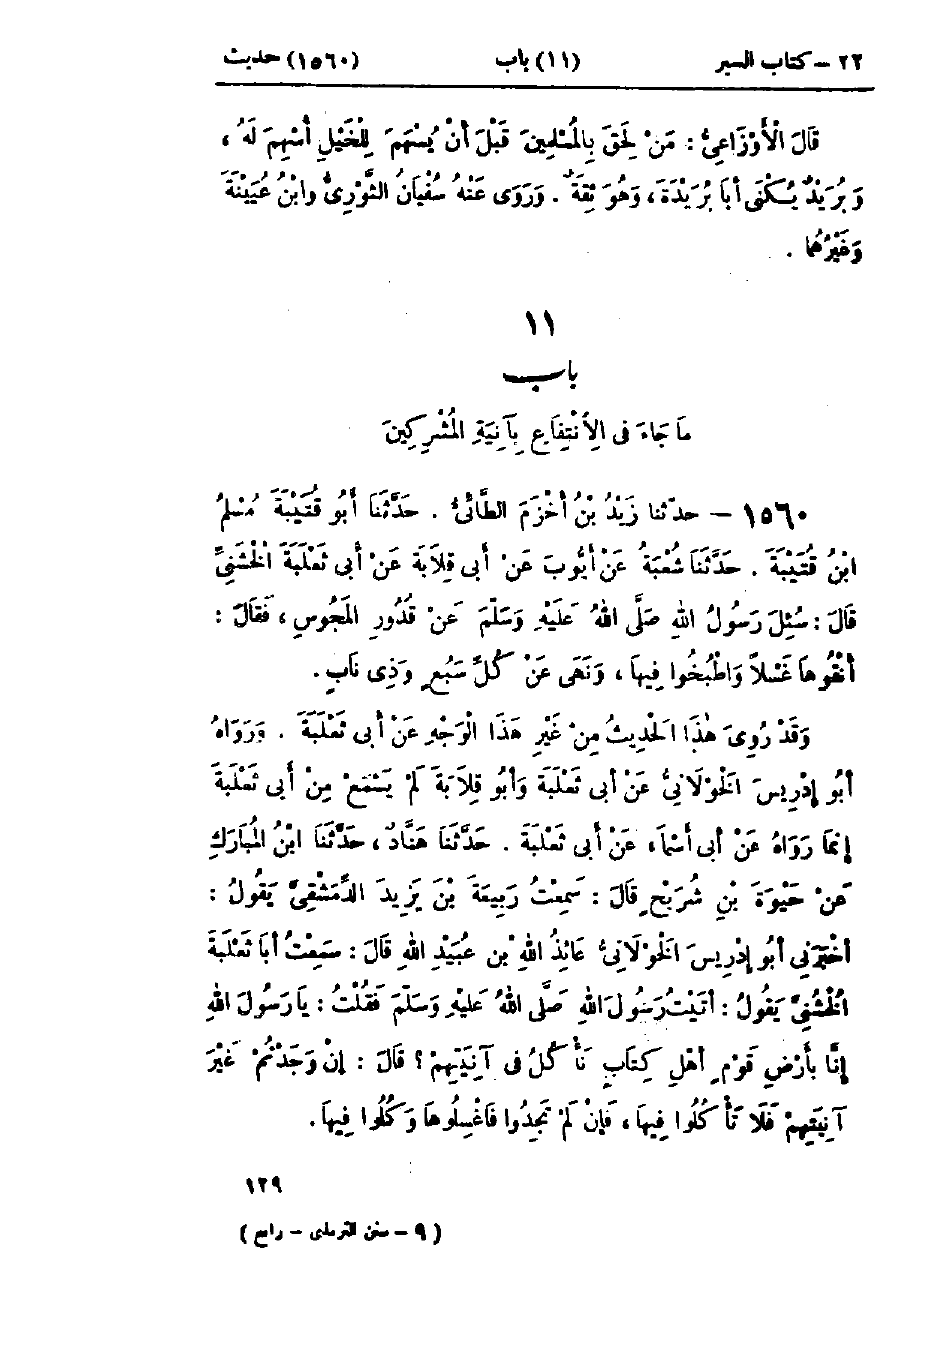 ٢٢ – كتاب السير (١١) باب (١٥٦٠) حديث
قَالَ الْأَوْزَاعِىُّ : مَنْ لَحِقَ بِالْمُسْلِمِينَ قَبْلَ أَنْ يُسْهَمَ لِلْخَيْلِ أُسْهِمَ لَهُ ،
وَبُرَيْدٌ يُكْنَى أَبَا بُرَيْدَةَ ، وَهُوَ ثِقَةٌ . وَرَوَى عَنْهُ سُفْيَانُ الثَّوْرِىُّ وَابْنُ عُيَيْنَةَ
وَغَيْرُهُمَا .
١١
باب
مَا جَاءَ فِى الِانْتِفَاعِ بِآنِيَةِ الْمُشْرِكِينَ
١٥٦٠ – حدّثنا زَيْدُ بْنُ أَخْزَمَ الطَّائِىُّ . حَدَّثَنَا أَبُو قُتَيْبَةَ مُسْلِمُ
ابْنُ قُتَيْبَةَ . حَدَّثَنَا شُعْبَةُ عَنْ أَيُّوبَ عَنْ أَبِى قِلَابَةَ عَنْ أَبِى ثَعْلَبَةَ الْخُشَنِىِّ
قَالَ : سُئِلَ رَسُولُ اللهِ صَلَّى اللهُ عَلَيْهِ وَسَلَّمَ عَنْ قُدُورِ الْمَجُوسِ ، فَقَالَ :
أَنْقُوهَا غَسْلاً وَاطْبُخُوا فِيهَا ، وَنَهَى عَنْ كُلِّ سَبُعٍ وَذِى نَابٍ .
وَقَدْ رُوِىَ هٰذَا الْحَدِيثُ مِنْ غَيْرِ هَذَا الْوَجْهِ عَنْ أَبِى ثَعْلَبَةَ . وَرَوَاهُ
أَبُو إِدْرِيسَ الْخَوْلَانِىُّ عَنْ أَبِى ثَعْلَبَةَ وَأَبُو قِلَابَةَ لَمْ يَسْمَعْ مِنْ أَبِى ثَعْلَبَةَ
إِنَّمَا رَوَاهُ عَنْ أَبِى أَسْمَاءَ عَنْ أَبِى ثَعْلَبَةَ . حَدَّثَنَا هَنَّادٌ ، حَدَّثَنَا ابْنُ الْمُبَارَكِ
عَنْ حَيْوَةَ بْنِ شُرَيْحٍ قَالَ : سَمِعْتُ رَبِيعَةَ بْنَ يَزِيدَ الدِّمَشْقِىَّ يَقُولُ :
أَخْبَرَنِى أَبُو إِدْرِيسَ الْخَوْلَانِىُّ عَائِذُ اللهِ بْنِ عُبَيْدِ اللهِ قَالَ : سَمِعْتُ أَبَا ثَعْلَبَةَ
الْخُشَنِىَّ يَقُولُ : أَتَيْتُ رَسُولَ اللهِ صَلَّى اللهُ عَلَيْهِ وَسَلَّمَ فَقُلْتُ : يَا رَسُولَ اللهِ
إِنَّا بِأَرْضِ قَوْمٍ أَهْلِ كِتَابٍ نَأْكُلُ فِى آنِيَتِهِمْ ؟ قَالَ : إِنْ وَجَدْتُمْ غَيْرَ
آنِيَتِهِمْ فَلَا تَأْكُلُوا فِيهَا ، فَإِنْ لَمْ تَجِدُوا فَاغْسِلُوهَا وَكُلُوا فِيهَا .
١٢٩
( ٩ – سنن الترمذى – رابع )